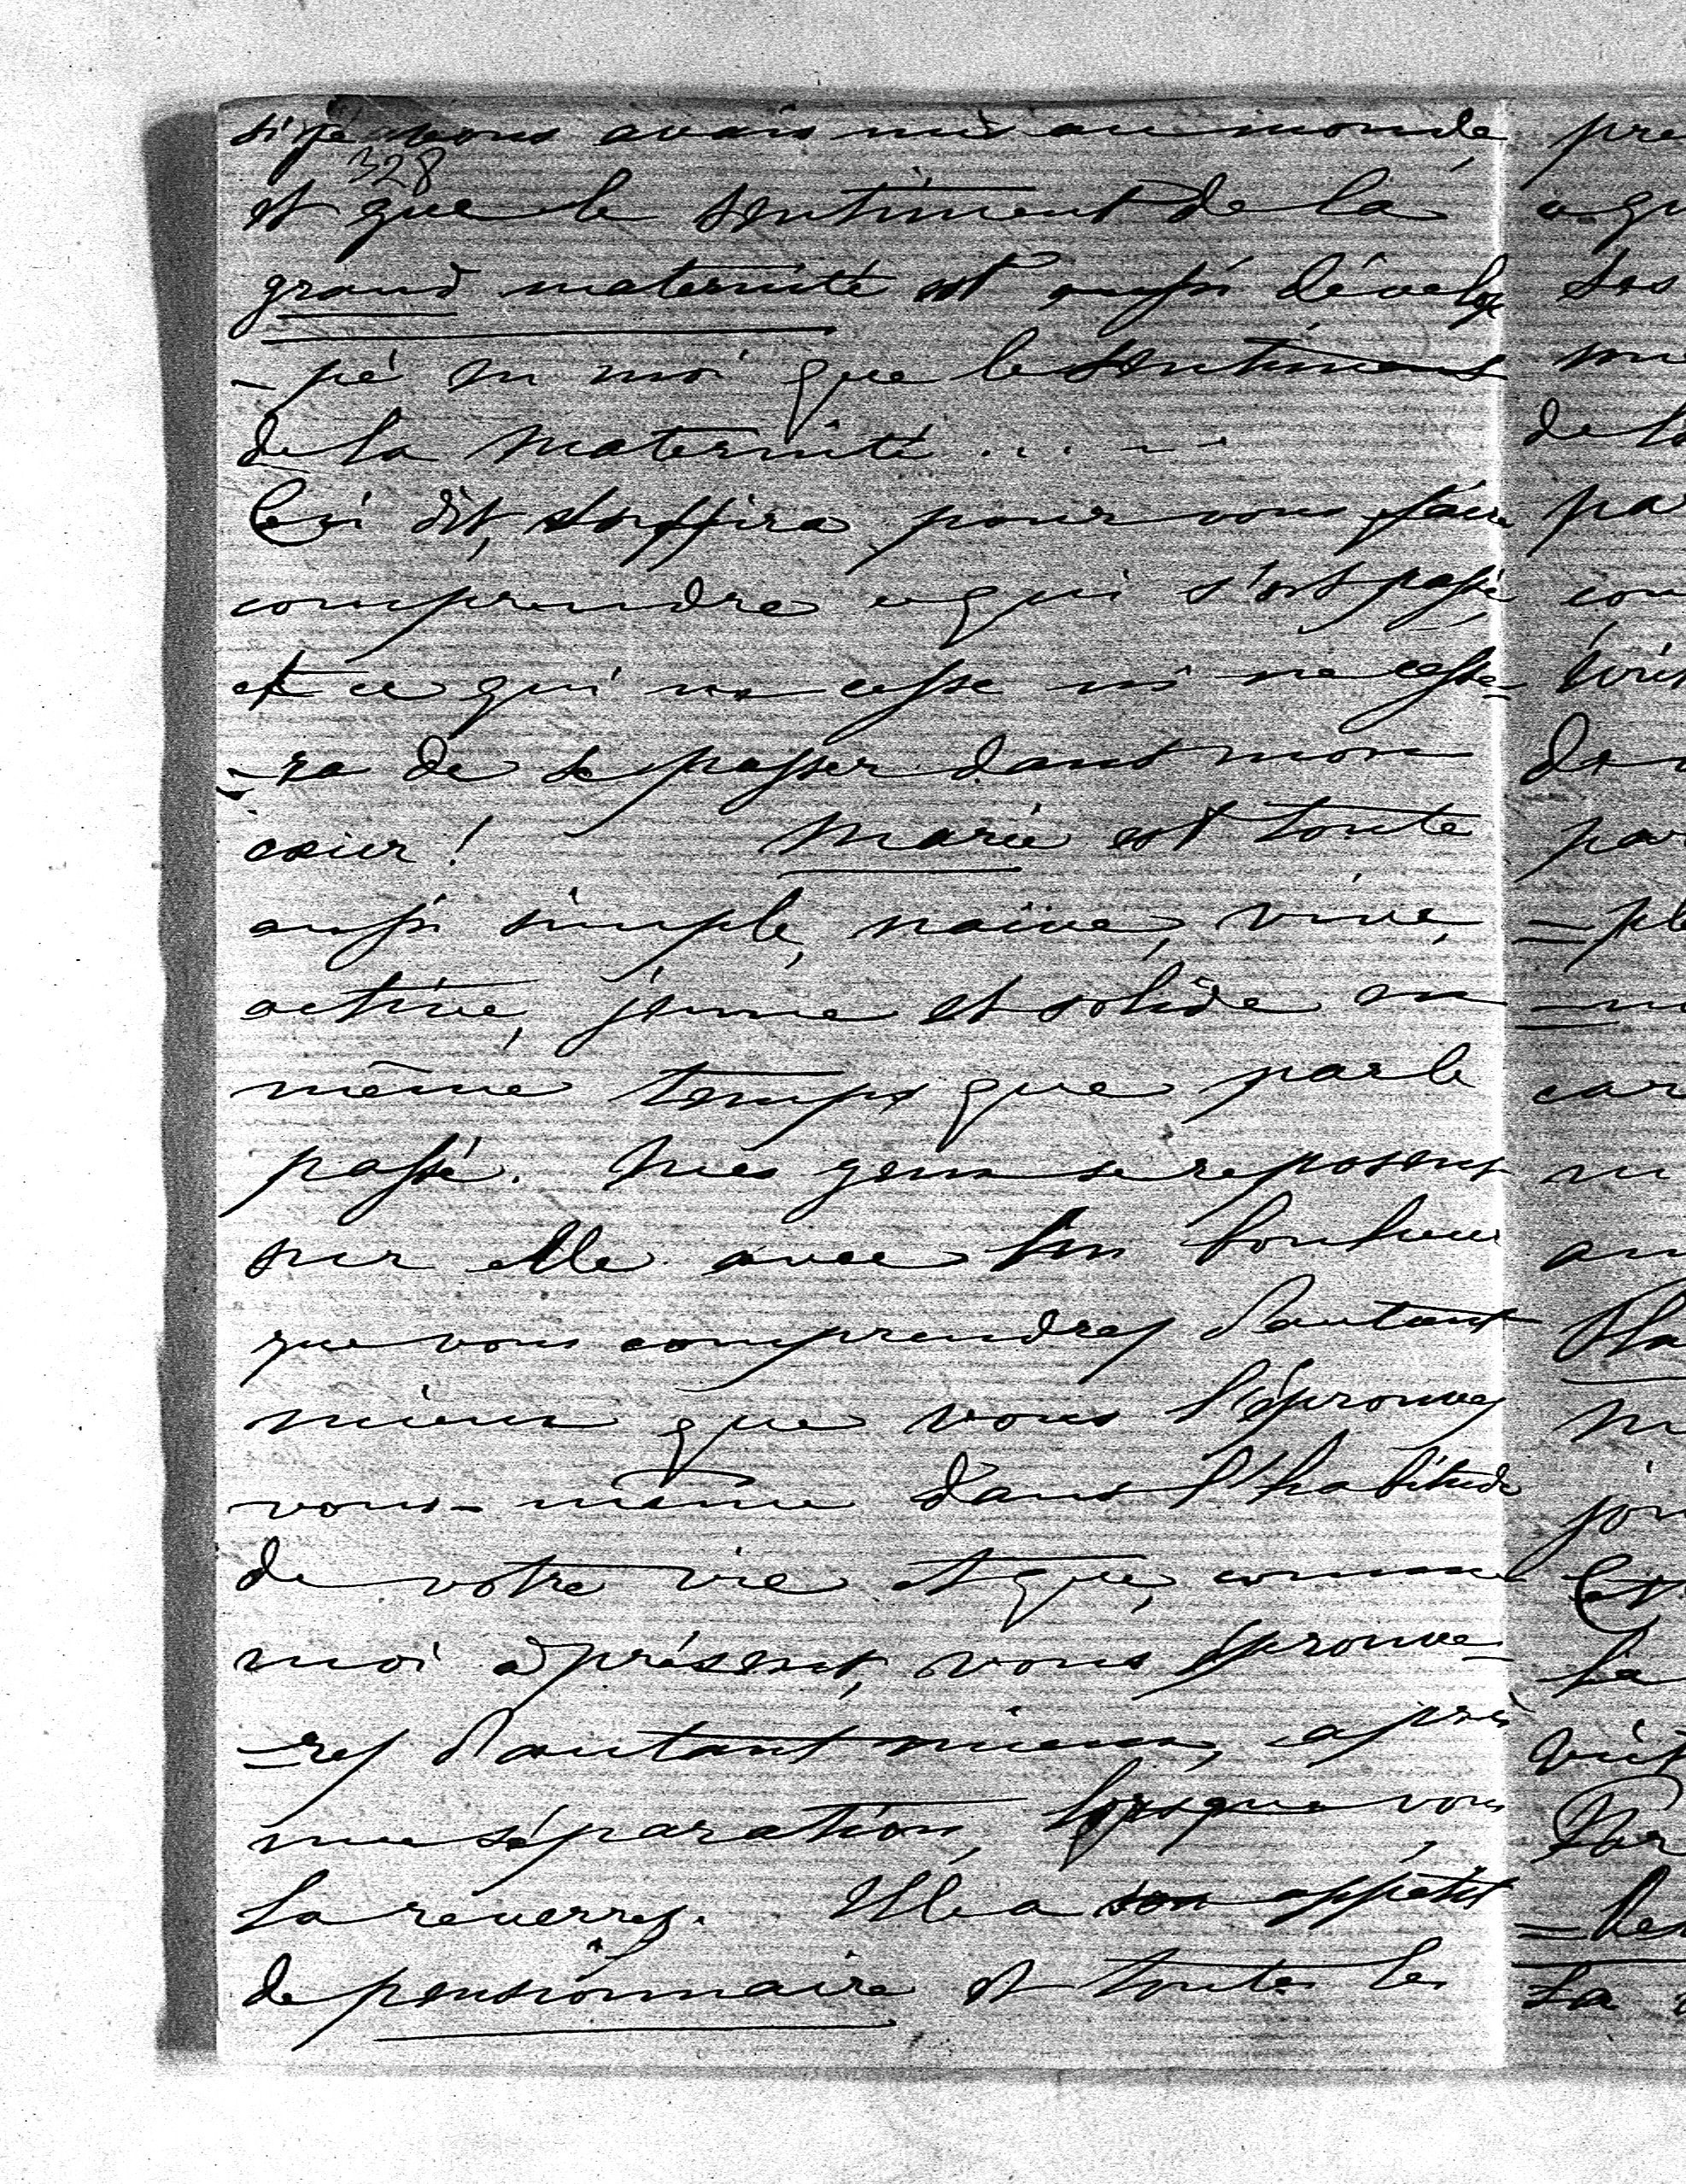 si je vous avais mis au monde,
328
et que le sentiment de la
grand maternité est aussi dévelop
-pé en moi que le sentiment
de la maternité .....
Ceci dit, suffira pour vous faire
comprendre ce qui s'est passé
et ce qui ne cesse ni ne cesse=
=ra de se passer dans mon
cœur ! Marie est toute
aussi simple, naïve, vive,
active, jeune et solide en
même temps que par le
passé. Mes yeux se reposent
sur elle avec un bonheur
que vous comprendrez d'autant
mieux que vous l'éprouvez
vous-même dans l'habitude
de votre vie et que, comme
moi à présent, vous éprouve=
=rez d'autant mieux, après
une séparation, lorsque vous
la reverrez. Elle a son appétit
de pensionnaire et toutes les
pre
de la
pa
=ple
car
la
=
la